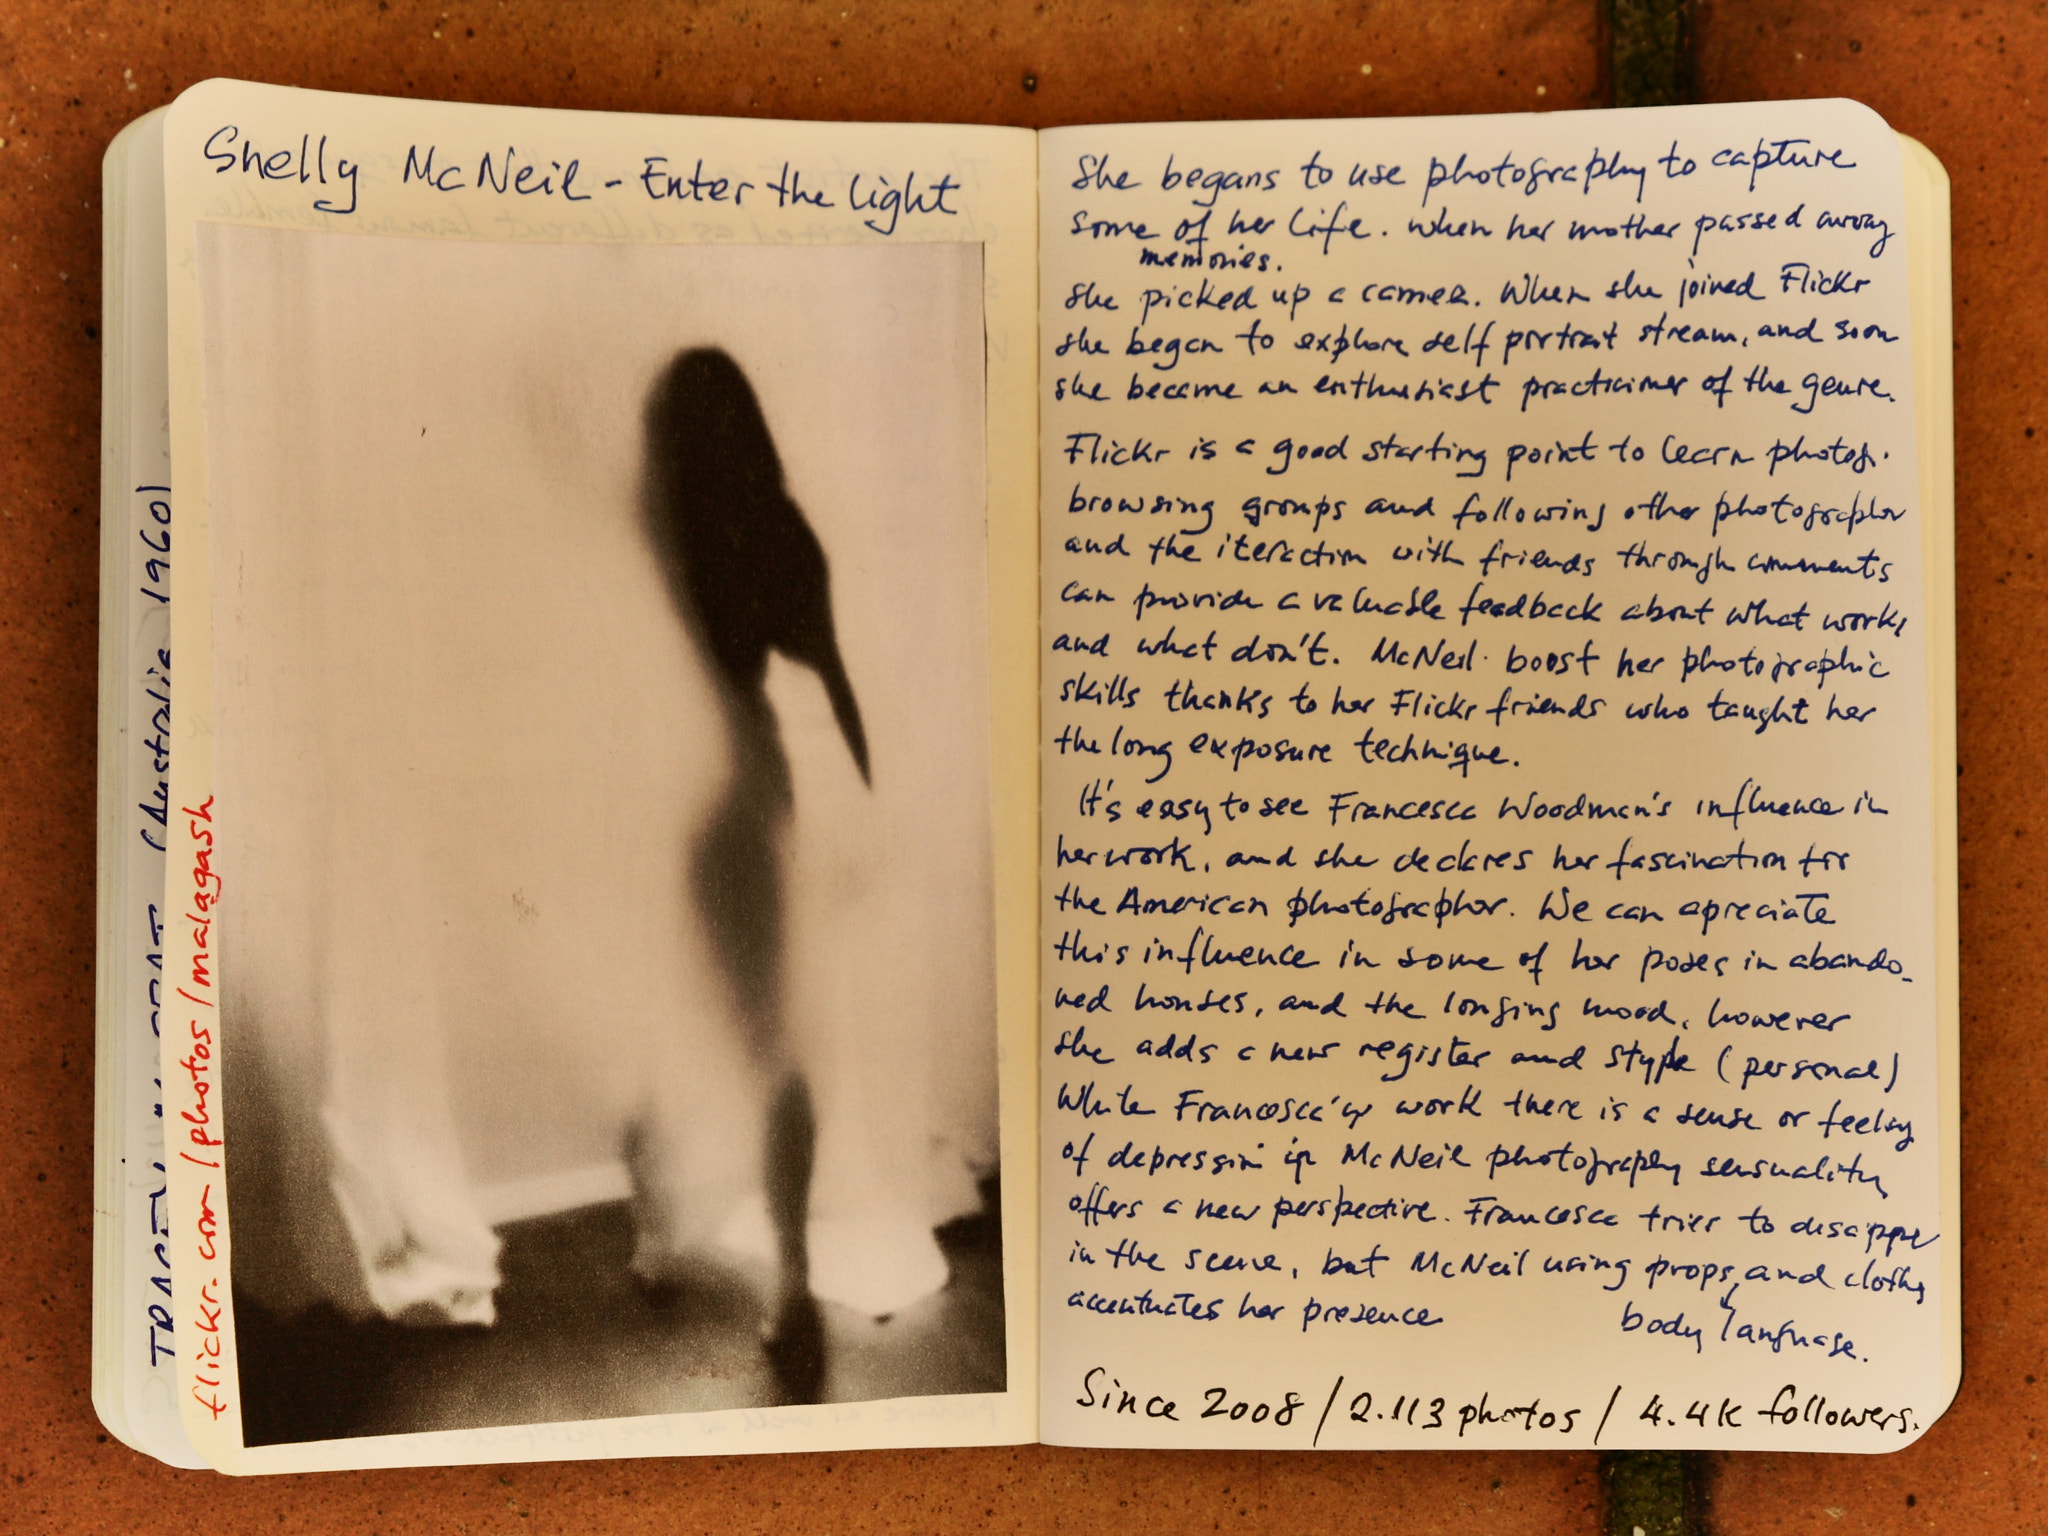 Shelly McNeil - Enter the light
flickr.com/photos/malagash
(Australia 1960)
She begans to use photography to capture
some of her life. When her mother passed away
memories.
she picked up a camera. When she joined Flickr
she began to explore self portrait stream, and soon
she became an enthusiast practicioner of the genre.
Flickr is a good starting point to learn photog.
browsing groups and following other photographer
and the iteraction with friends through comments
can provide a valuable feedback about what works
and what don't. McNeil boost her photographic
skills thanks to her Flickr friends who taught her
the long exposure technique.
It's easy to see Francesca Woodman's influence in
her work, and she declares her fascination for
the American photographer. We can apreciate
this influence in some of her poses in abando-
ned houses, and the longing mood, however
she adds a new register and style (personal)
While Francesca's work there is a sense or feeling
of depression in McNeil photography sensuality
offers a new perspective. Francesca tries to disappear
in the scene, but McNeil using props, and clothes
accentuates her presence
body language.
Since 2008 / 2.113 photos / 4.4K followers.